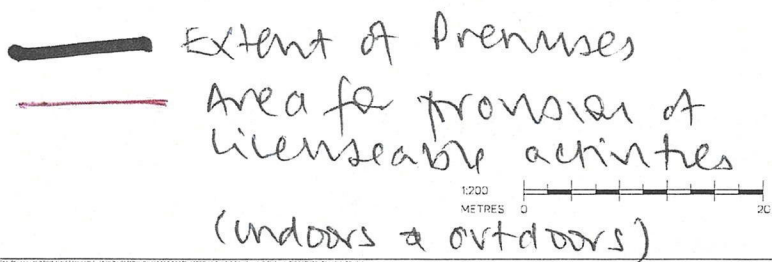 Extent of Premises
Area for provision of
licenseable activities
1:200
METRES 0 20
(indoors & outdoors)